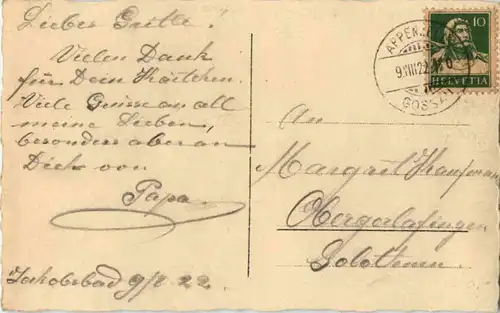 Lieber Gretli!
Vielen Dank
für Dein Kärtchen.
Viele Grüsse an all
meine Lieben,
besonders aber an
Dich von
Papa.
Jakobsbad 9/8. 22.
An
Margrit Kaufmann
Obergerlafingen
Solothurn.
10
HELVETIA
APPEN
9.VIII.22
GOSSA